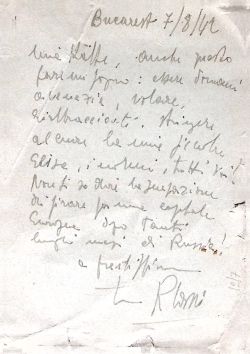 Bucarest 7/8/42
anche questo
fare un sogno: essere domani
a Venezia, volare,
riabbracciarti, stringere
al cuore la mia piccola
Elisa, i nonni, tutti voi!
Non ti so dire la sensazione
di girare per una capitale
Europea dopo tanti
lunghi mesi di Russia!
a prestissimo